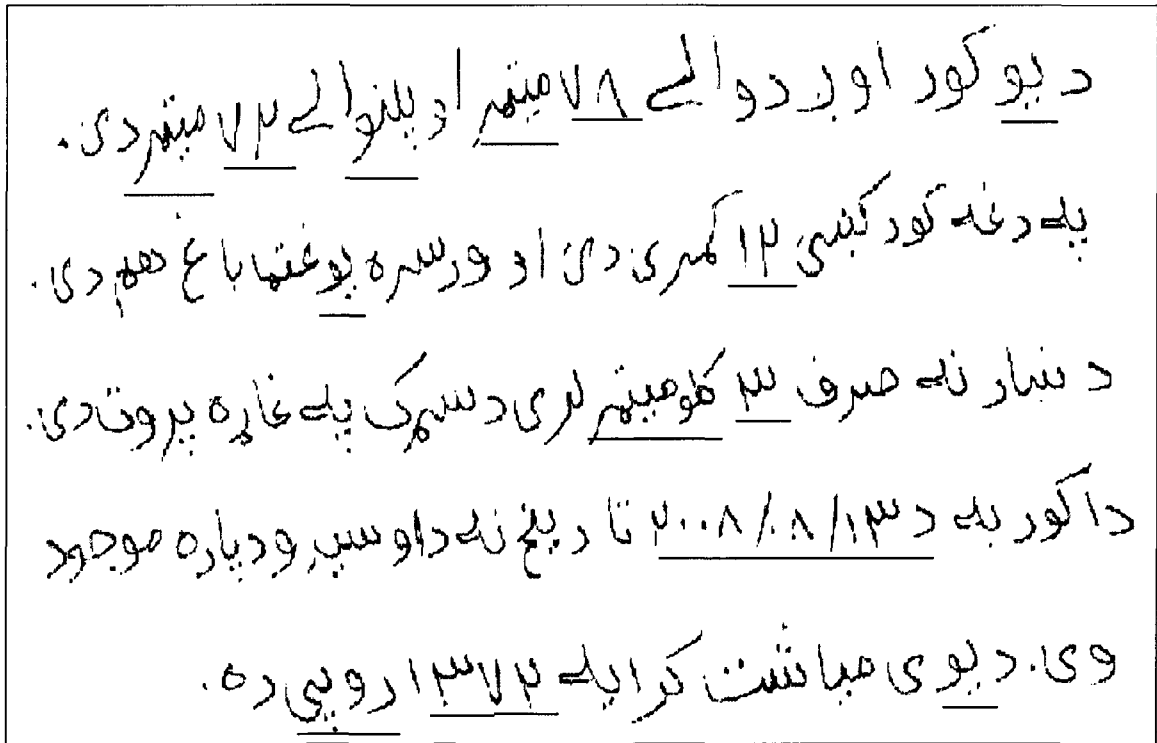 د یو کور اوږدوالے ۷۸ میټر او پلنوالے ۷۲ میټر دی.
په دغه کور کښې ۱۲ کمری دی او ورسره یو غټ باغ هم دی.
د ښار نه صرف ۳ کلومیټر لری د سړک په غاړه پروت دی.
دا کور به د ۲۰۰۸/۰۸/۱۳ تاریخ نه د اوسېدو دپاره موجود
وی. د یوی میاشت کرایه ۱۳۷۲ روپی ده.